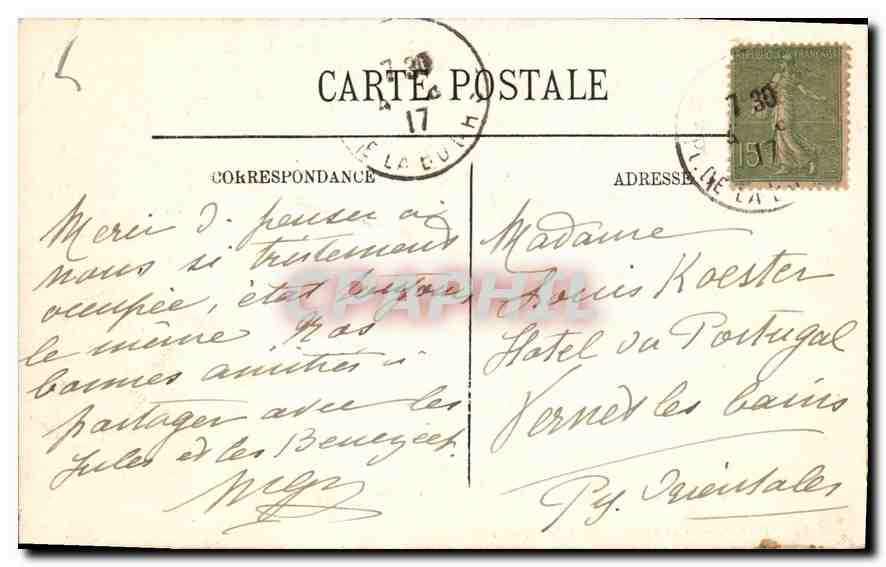 CARTE POSTALE
7 30
17
DE LA BOURSE
7 30
17
PL. DE LA B
15
CORRESPONDANCE
ADRESSE
Merci d. penser à
nous si tristement
occupée, état toujours
le même Nos
bonnes amitiés à
partager avec les
Jules et les Benezech.
Madame
Louis Koester
Hotel du Portugal
Vernet les bains
Py. Orientales
CPAPHIL